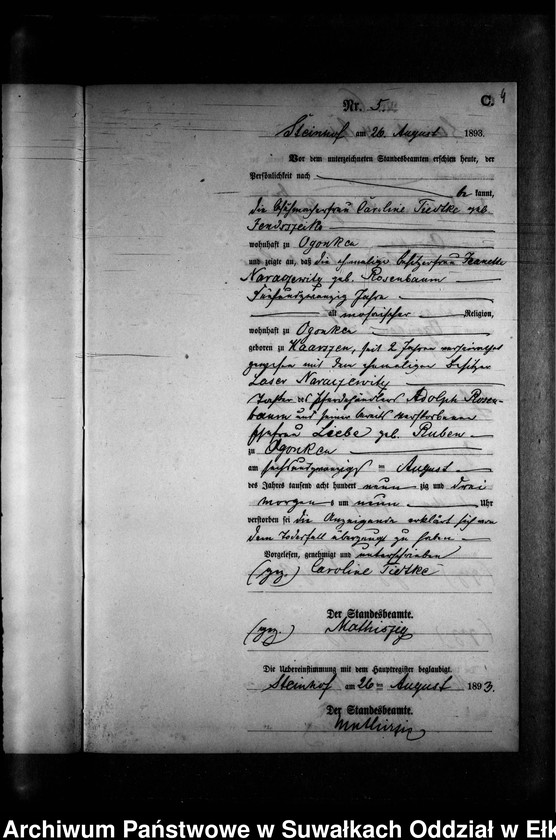 Nr. 5.
C. 4
Steinhof am 26. August 1893.
Vor dem unterzeichneten Standesbeamten erschien heute, der
Persönlichkeit nach
be kannt,
die Caroline Tiedtke geb.
wohnhaft zu Ogonken
und zeigte an, daß die ehemalige Besitzerfrau Jeanette
Narazewitz geb. Rosenbaum
Fünfundzwanzig Jahre
alt mosaischer Religion,
wohnhaft zu Ogonken
geboren zu Haarszen, seit 2 Jahren verheirathet
gewesen mit dem ehemaligen Besitzer
Laser Narazewitz
Tochter des Pferdehändlers Adolph Rosen-
baum und seiner bereits verstorbenen
Ehefrau Liebe geb. Ruben
zu Ogonken
am sechsundzwanzigsten August
des Jahres tausend acht hundert neun zig und drei
Morgens um neun Uhr
verstorben sei die Anzeigende erklärt sich von
dem Todesfall überzeugt zu haben
Vorgelesen, genehmigt und unterschrieben
(gez.) Caroline Tiedtke
Der Standesbeamte.
(gez.) Mathiszig
Die Uebereinstimmung mit dem Hauptregister beglaubigt.
Steinhof am 26ten August 1893.
Der Standesbeamte.
Mathiszig
Archiwum Państwowe w Suwałkach Oddział w Ełk